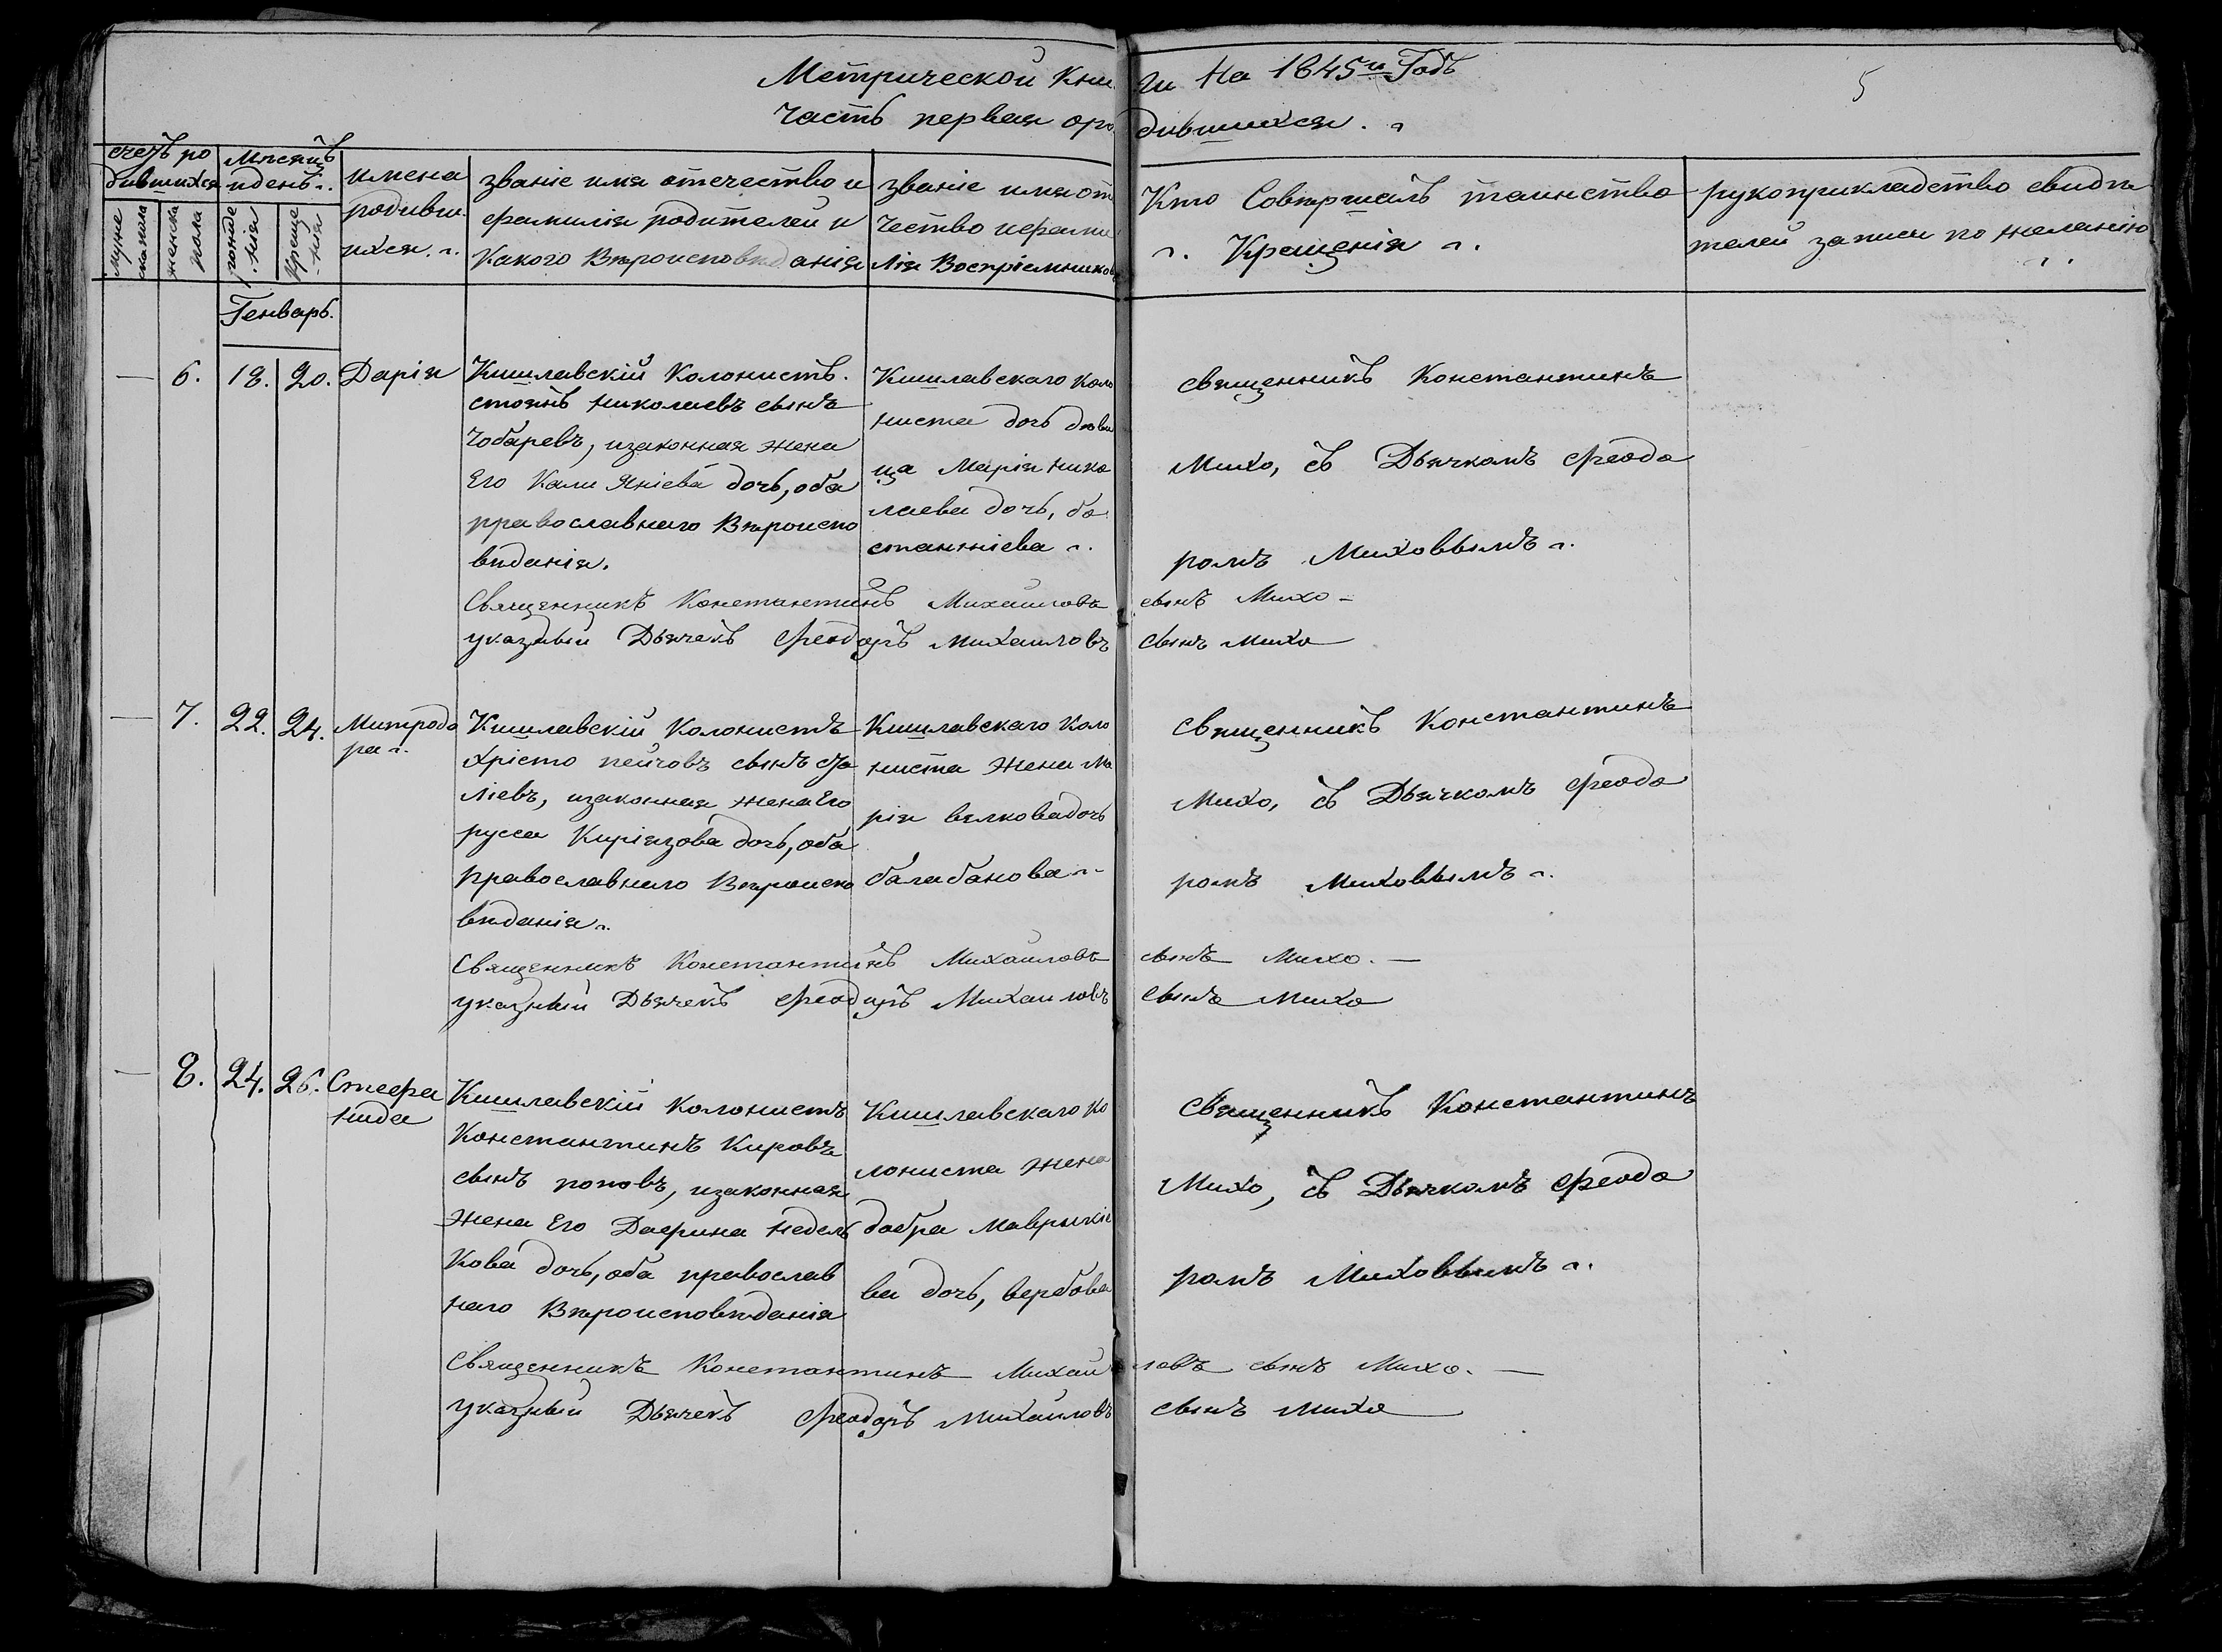 Метрической Книги На 1845й Годъ
5
Часть первая о родившихся.
счетъ ро
дившихся
Мѣсяцъ
и день
имена
родивши
ихся
званіе имя отечество и
фамилія родителей и
Какого Вѣроисповѣданія
званіе имя от
чество и фами
лія Воспріемниковъ
Кто Совершалъ таинство
Крещенія
рукоприкладство свидѣ
телей записи по желанію
муже
ска пола
женска
пола
рожде
нія
Креще
нія
Генварь.
— 6. 18. 20. Дарія
Кишлавскій Колонистъ.
стоянъ николаевъ сынъ
Чобаревъ, изаконная жена
Его Кали Яніева дочь, оба
православнаго Вѣроиспо
вѣданія.
Кишлавскаго Коло
ниста дочь деви
ца Марія нико
лаева дочь, ба
станжіева
священникъ Константинъ
Михо, съ Дьячкомъ Феодо
ромъ Миховымъ
Священникъ Константинъ Михаиловъ сынъ Михо —
указный Дьячекъ Феодоръ Михаиловъ сынъ Михо
— 7. 22. 24. Митродо
ра
Кишлавскій Колонистъ
Хрісто пейчовъ сынъ
ліевъ, изаконная жена Его
русса Киріязова дочь, оба
Православнаго Вѣроиспо
вѣданія
Кишлавскаго Коло
ниста Жена Ма
рія велкова дочь
балабанова
Священникъ Константинъ
Михо, съ Дьячкомъ Феодо
ромъ Миховымъ
Священникъ Константинъ Михаиловъ сынъ Михо. —
указный Дьячекъ Феодоръ Михаиловъ сынъ Михо
— 8. 24. 26. Стефа
нида
Кишлавскій Колонистъ
Константинъ Кировъ
сынъ поповъ, изаконная
Жена Его Дафина недель
Кова дочь, оба православ
наго Вѣроисповѣданія
Кишлавскаго Ко
лониста Жена
добра Маврыкіе
ва дочь, вербова
Священникъ Константинъ
Михо, съ Дьячкомъ Феодо
ромъ Миховымъ
Священникъ Константинъ Михаиловъ сынъ Михо. —
Указный Дьячекъ Феодоръ Михайловъ сынъ Михо